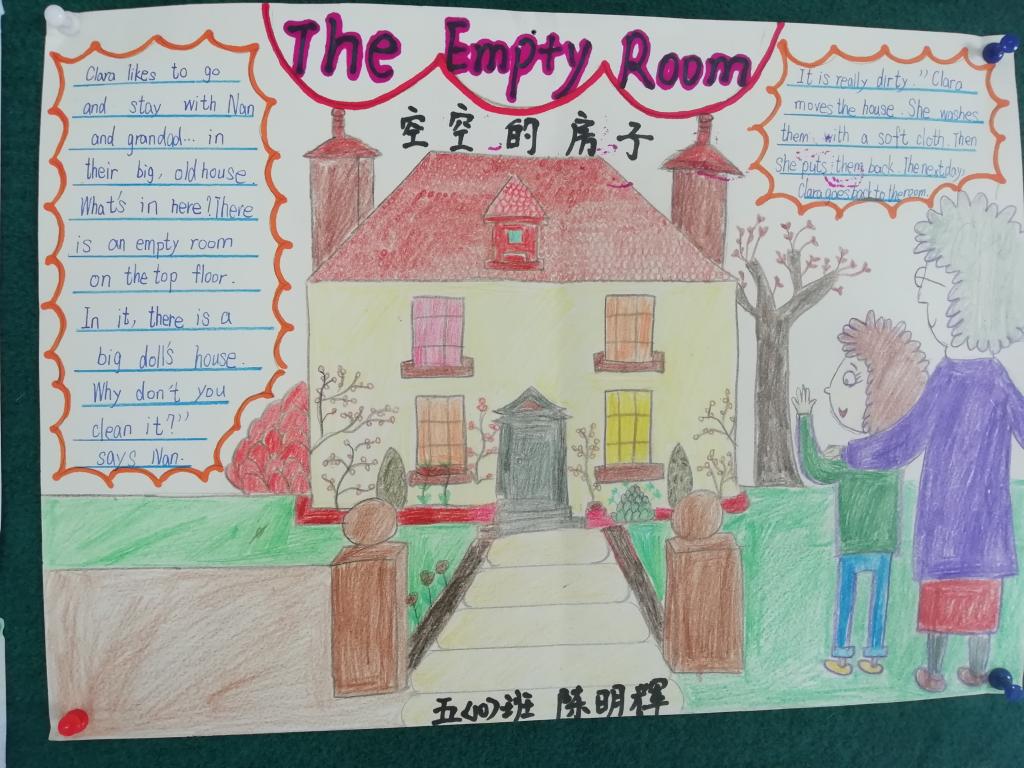 The Empty Room
空空的房子
Clara likes to go
and stay with Nan
and grandad... in
their big, old house.
What's in here? There
is an empty room
on the top floor.
In it, there is a
big doll's house.
Why don't you
clean it?"
says Nan.
It is really dirty." Clara
moves the house. She washes
them with a soft cloth. Then
she puts them back. The next day,
Clara goes back to the room.
五(10)班 陈明辉